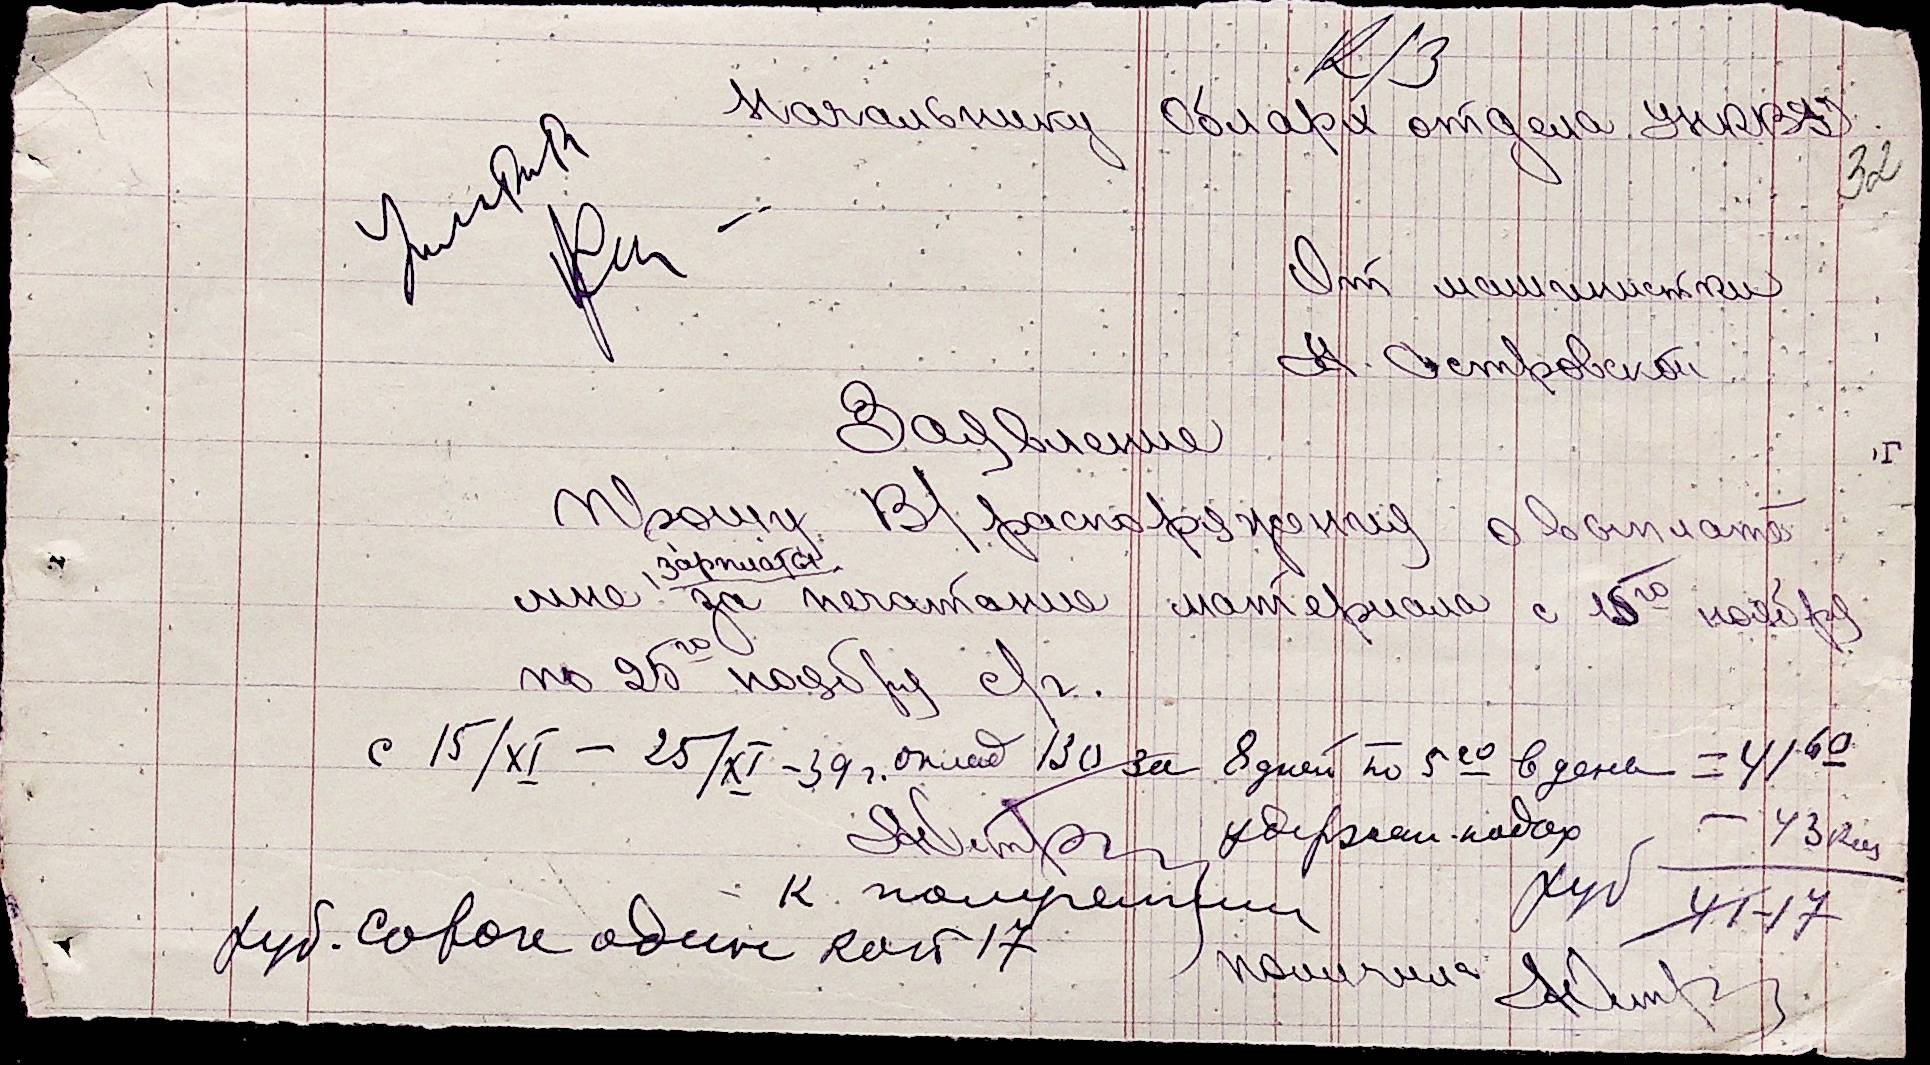 К/З
Начальнику Обларх отдела УНКВД
32
Уплатить
От машинистки
Н. Островской
Заявление
Прошу В/распоряжения о выплате
зарплаты
мне за печатание материала с 15го ноября
по 25го ноября с/г.
с 15/XI – 25/XI – 39 г. оклад 130 за 8 дней по 5 20 в день = 41 60
удержан. подох – 43 коп
К получению руб 41-17
руб. сорок один коп 17
получила